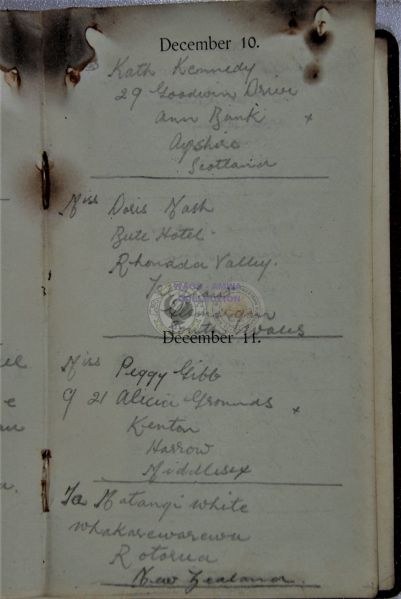 December 10.
Kath Kennedy
29 Goodwin Drive
Ann Bank x
Ayshire
Scotland
Miss Doris Nash
Bute Hotel.
Rhondda Valley.
Glamorgan
South Wales
December 11.
Miss Peggy Gibb
9 21 Alicia Grounds x
Kenton
Harrow
Middlesex
Ta Matangi White
Whakarewarewa
Rotorua
New Zealand.